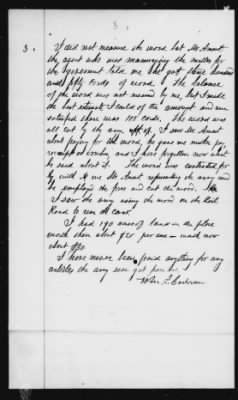 3
3.
I did not measure the wood but Mr Arnt
the agent who was managing the matter for
the government told me that got three hundred
and fifty cords of wood. The balance
of the wood was not measured by me, but I made
the best estimate I could of the amount and am
satisfied there was 105 cords. The wood was
all cut by the army. I saw Mr Arnt
about paying for the wood, he gave me neither pay
receipt nor voucher and I have forgotten now what
he said about it. The wood was contracted for
by with me Mr Arnt representing the army and
he employed the force and cut the wood.
I saw the army using the wood on the Rail
Road to run the cars
I had 190 acres of land in the place
worth then about $20 per acre — worth now
about
I have never been paid anything for any
articles the army ever got from me.
Wm